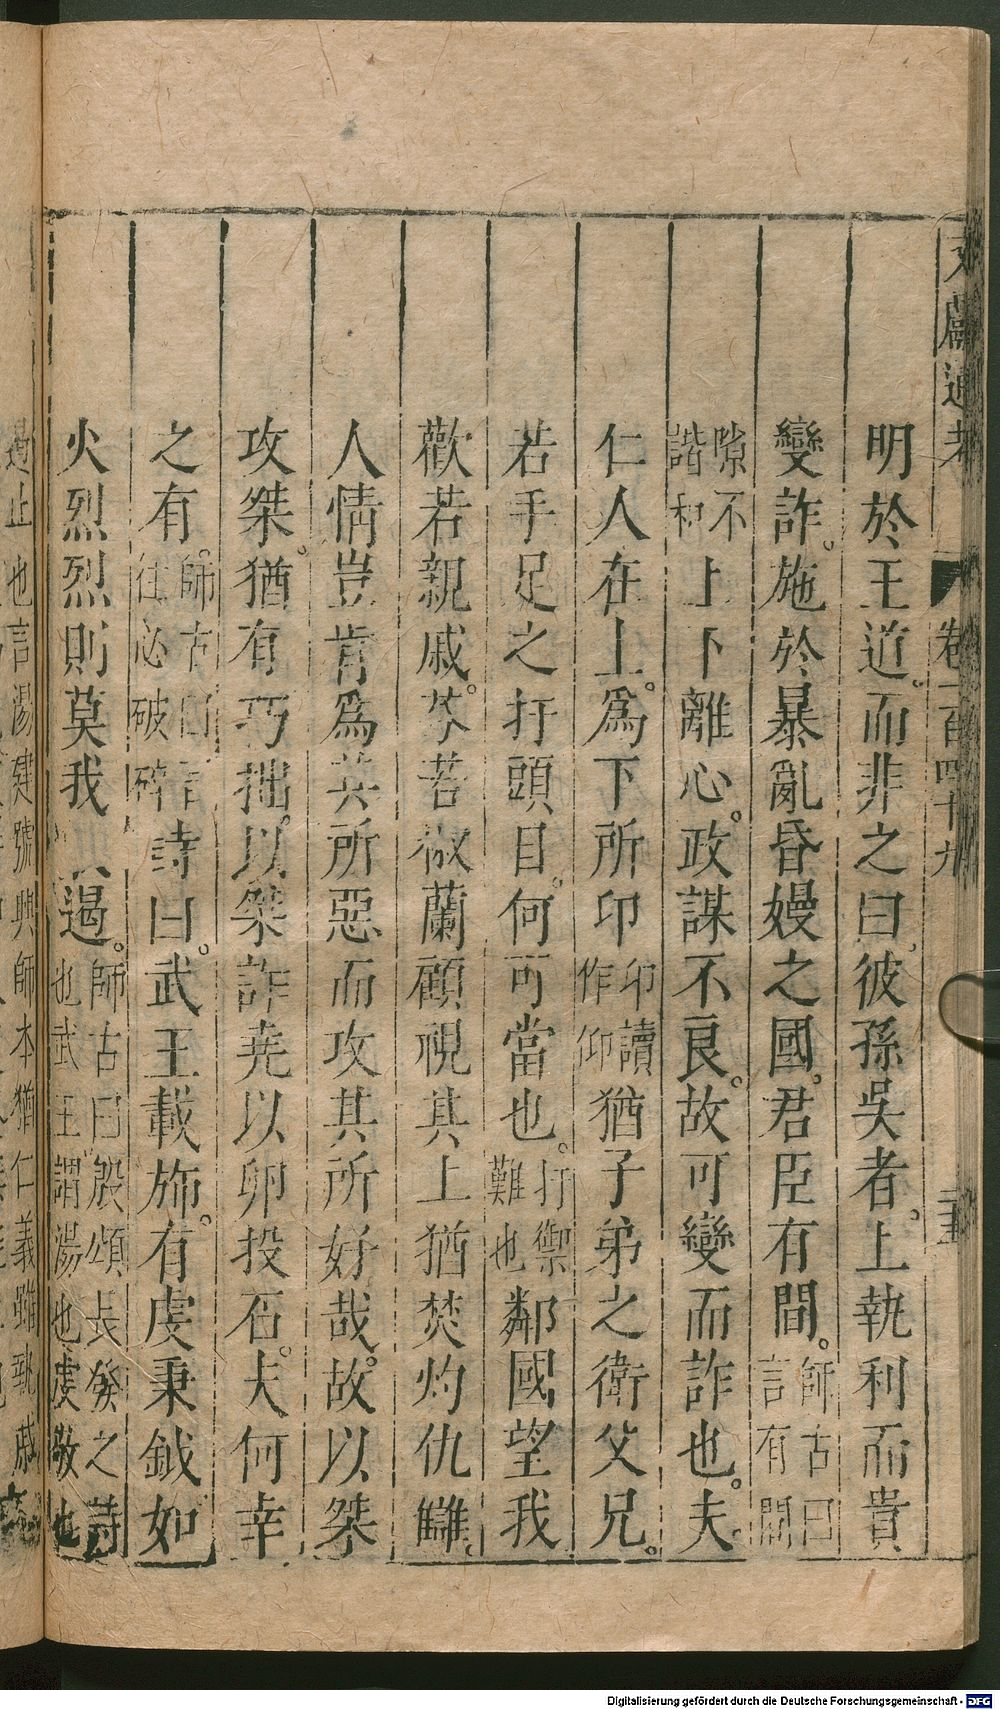 文獻通考 卷一百四十九
明於王道而非之曰彼孫吳者上執利而貴
變詐施於暴亂昏嫚之國君臣有間師古曰言有間
隙不諧和上下離心政謀不良故可變而詐也夫
仁人在上爲下所卬卬讀作仰猶子弟之衛父兄
若手足之扞頭目何可當也扞禦難也鄰國望我
歡若親戚芬若椒蘭顧視其上猶焚灼仇讎
人情豈肯爲其所惡而攻其所好哉故以桀
攻桀猶有巧拙以桀詐堯以卵投石夫何幸
之有師古曰言往必破碎詩曰武王載斾有虔秉鉞如
火烈烈則莫我遏師古曰殷頌長發之詩也武王謂湯也虔敬也
遏止也言湯建號興師本猶仁義雖執戚
Digitalisierung gefördert durch die Deutsche Forschungsgemeinschaft - DFG